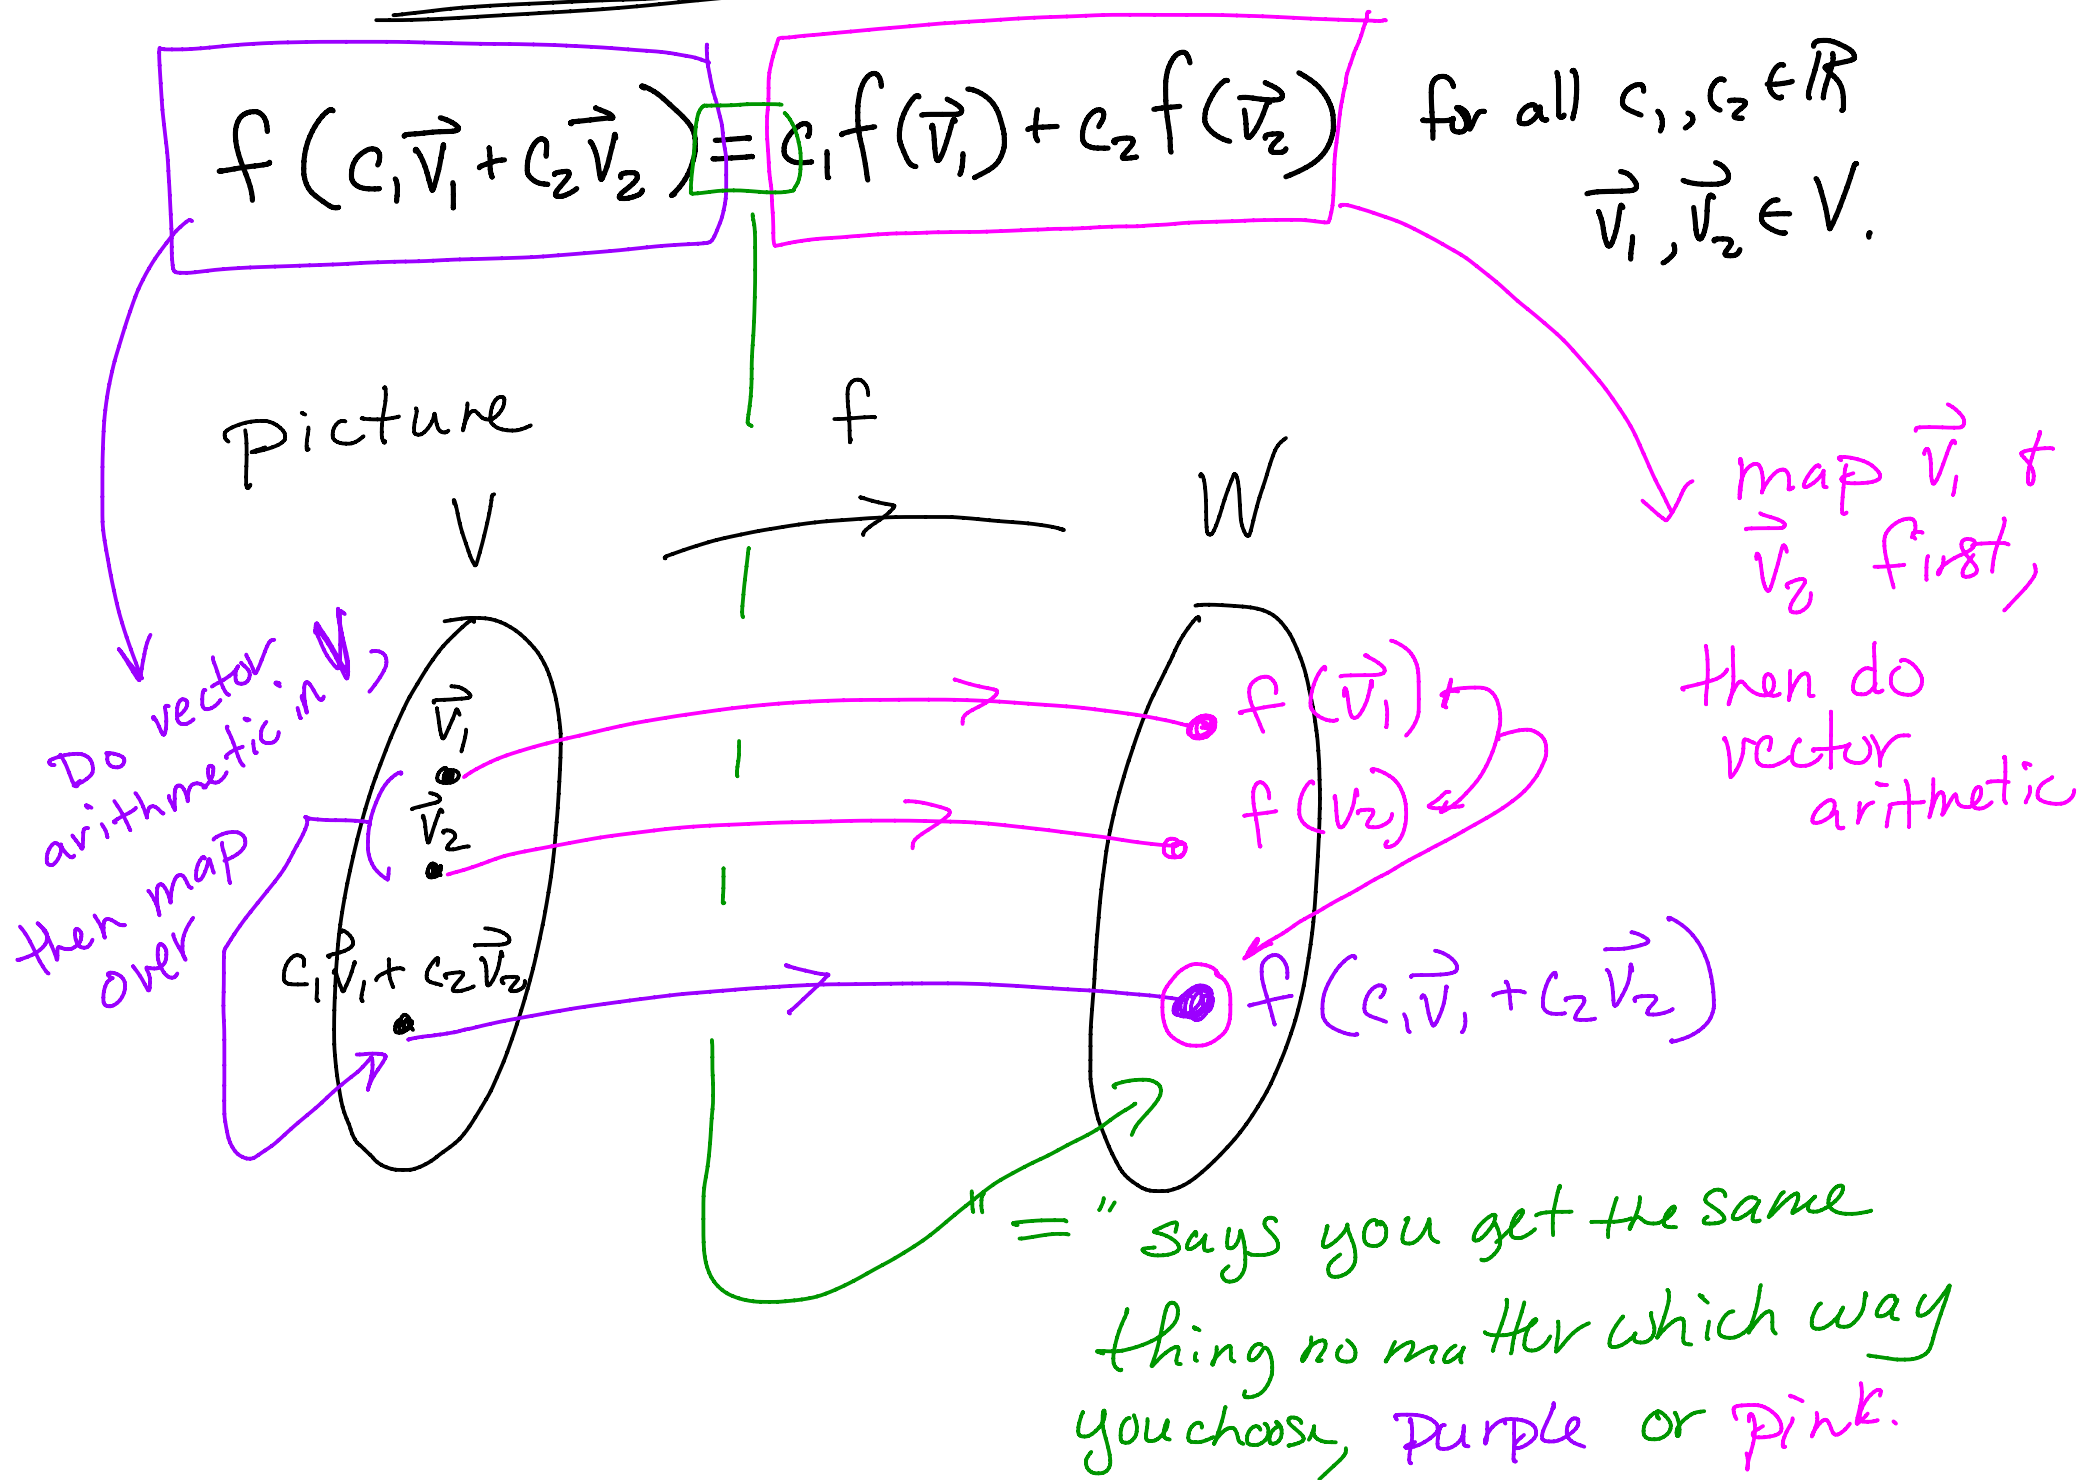 f(c₁v⃗₁ + c₂v⃗₂) = c₁f(v⃗₁) + c₂f(v⃗₂) for all c₁, c₂ ∈ ℝ
v⃗₁, v⃗₂ ∈ V.
picture
f
V
W
map v⃗₁ &
v⃗₂ first,
then do
vector
arithmetic
Do vector
arithmetic in V,
then map
over
v⃗₁
v⃗₂
c₁v⃗₁ + c₂v⃗₂
f(v⃗₁)
f(v₂)
f(c₁v⃗₁ + c₂v⃗₂)
"=" says you get the same
thing no matter which way
you choose, purple or pink.